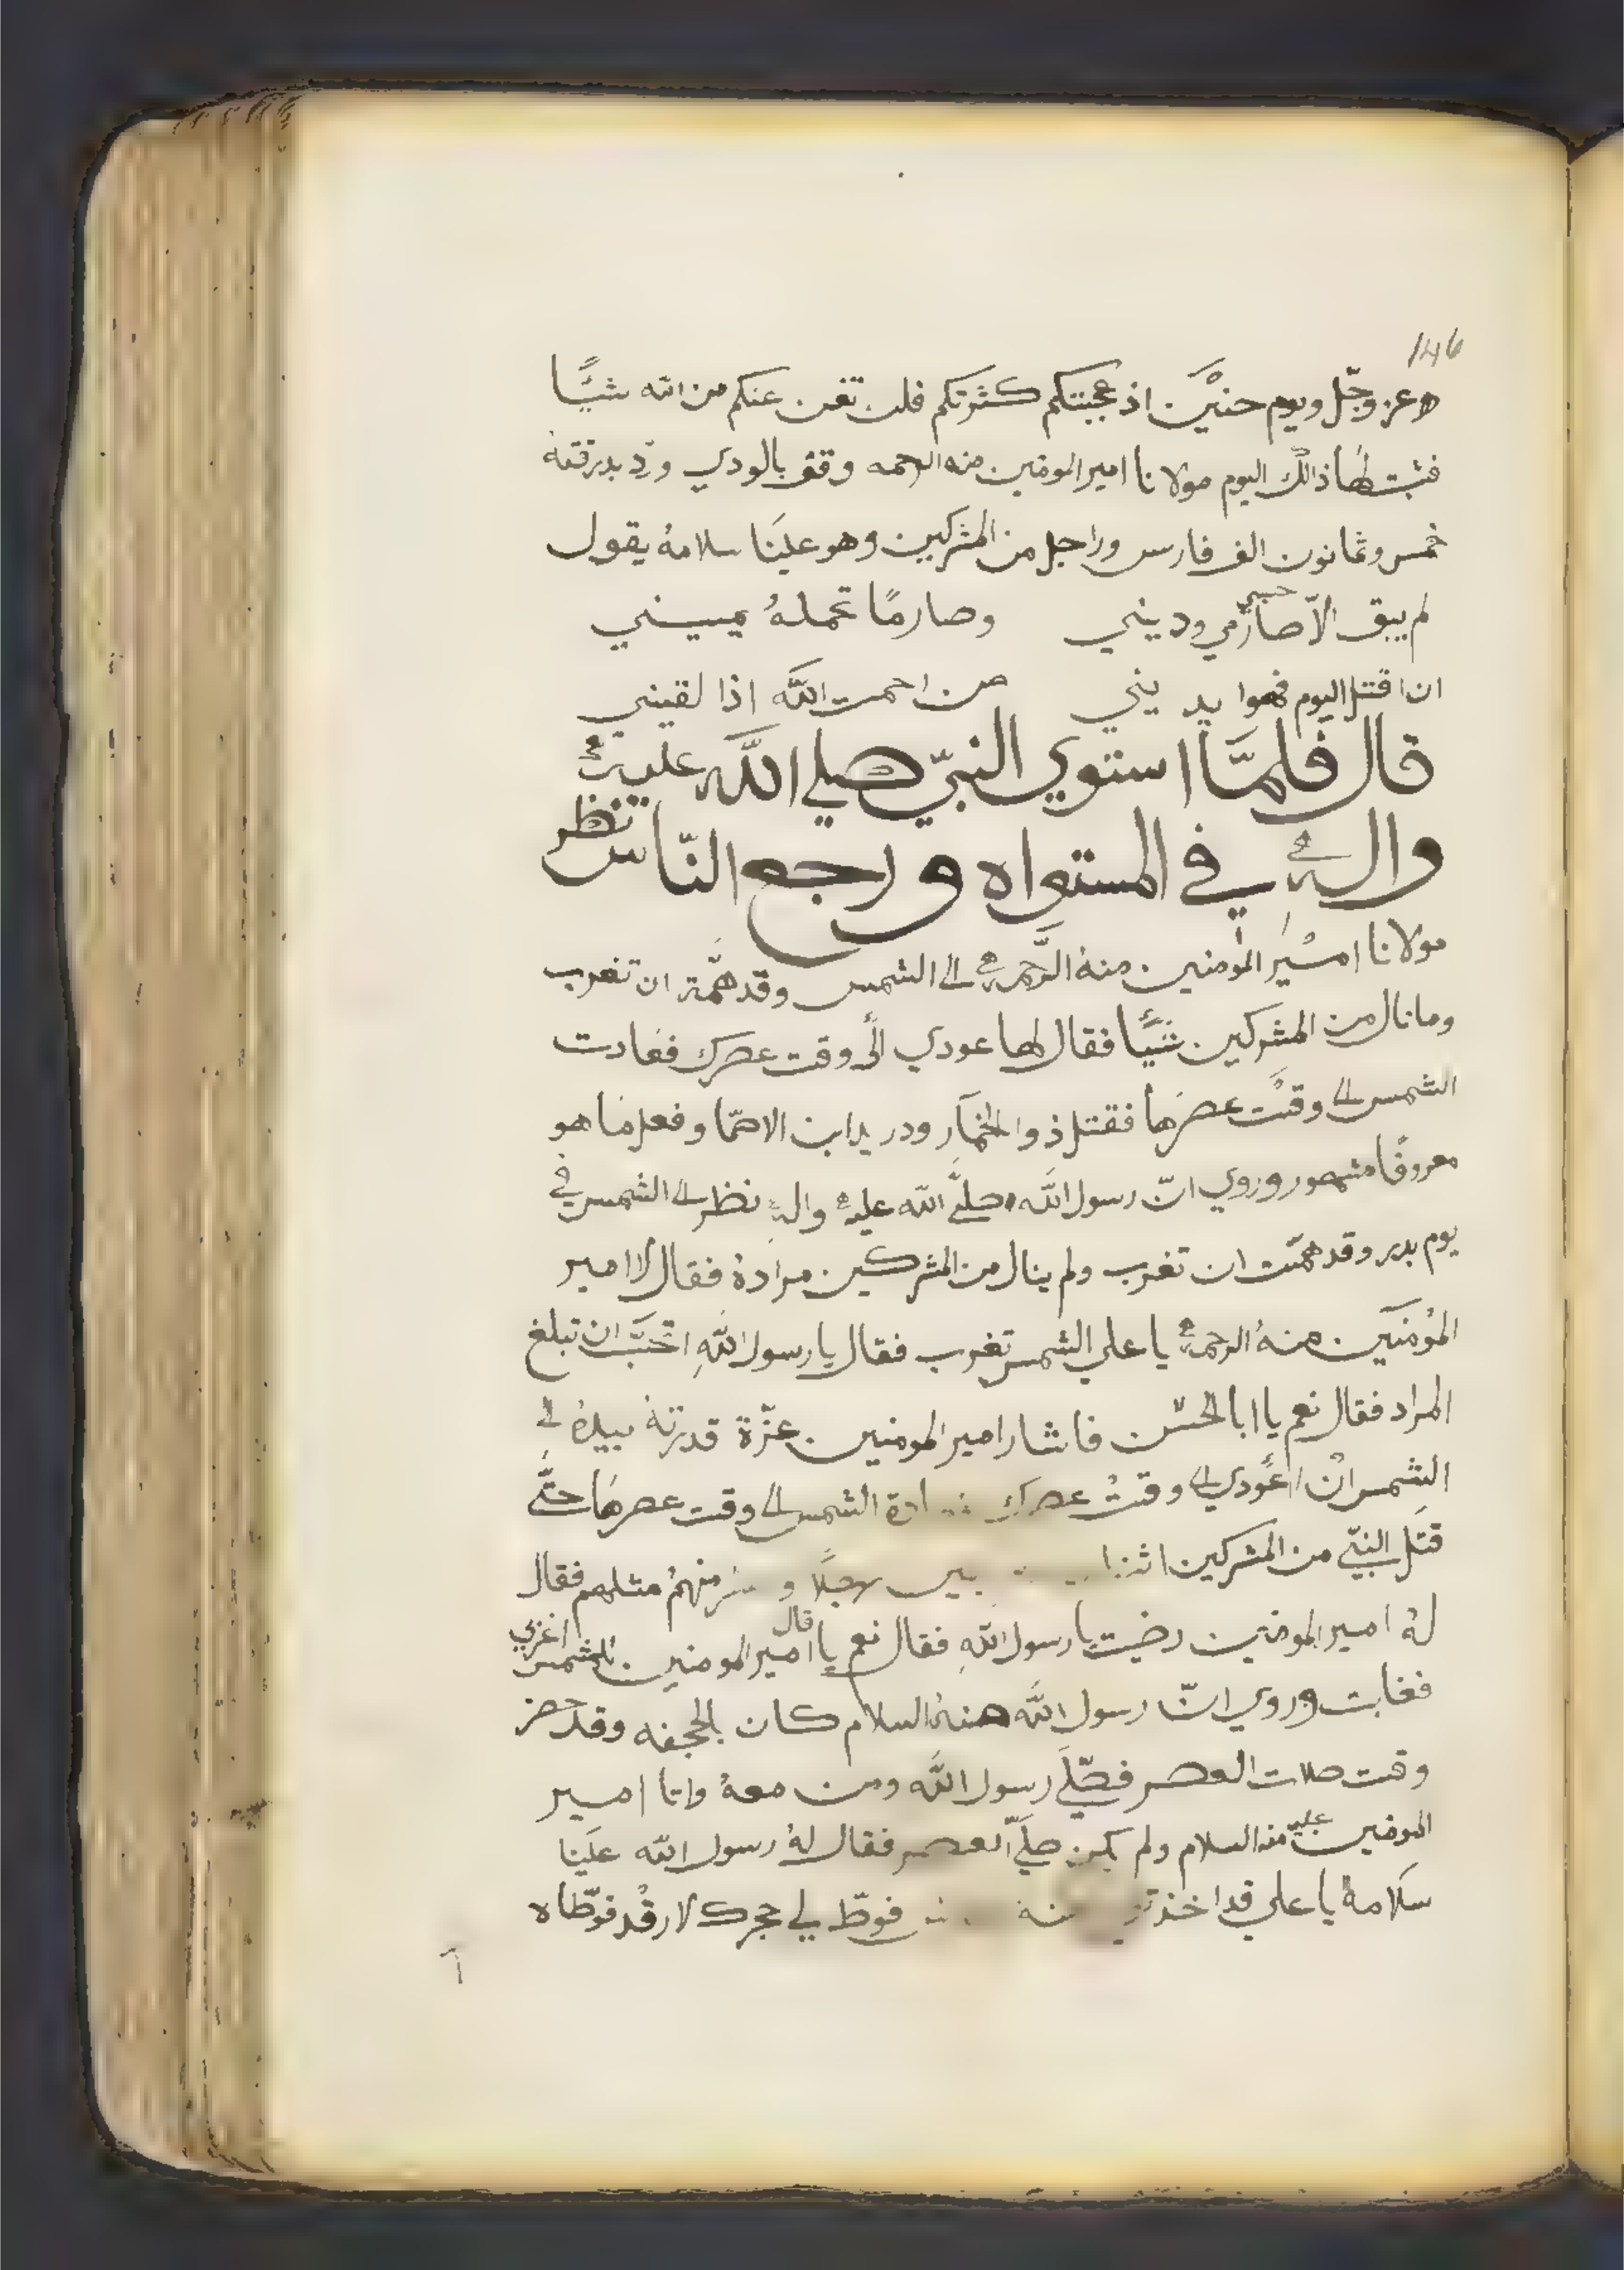 146
ه عز وجّل ويوم حنيّن اذ عجبتكم كثرتكم فلن تغن عنكم من الله شيًّا
فثبت لها ذالك اليوم مولانا امير المومنين منه الرحمه وقف بالودي ورد بدرقته
خمس وثمانون الف فارس وراجل من المشركين وهو علينَا سلامهُ يقول
لم يبق الّا صارمي وديني وصارمًا تحملهُ يميني
حبيبي
ان اقتل اليوم فهوا يديني من احمت اللّه اذا لقيني
قال فلمَّا استوي النبيّ صلي اللَّه عليه
واله في المستواه ورجع النّاس نظر
مولانا اميْر المؤمنين منهُ الرَّحمه الي الشمس وقد همَّة ان تغرب
وما نال من المشركين شيًّا فقال لها عودي الَى وقت عصرك فعادت
الشمس الي وقتْ عصرهَا فقتل ذو الخمَار ودريد ابن الاصمّا وفعل مَا هو
معروفًا مشهور وروي انّ رسول اللَّه صلَّي اللّه عليه واله نظر الي الشمس في
يوم بدر وقد همّت ان تغرب ولم ينال من المشركين مرادهُ فقال لامير
المؤمنَين منهُ الرحمه يا علي الشمس تغرب فقال يا رسول اللَّهِ اتحَبّ ان تبلغ
المراد فقال نعم يا ابا الحسّن فاشار امير المومنين عزّة قدرتهُ بيدهُ الي
الشمس انْ اعًودي الي وقتْ عصرك ادة الشمس الي وقت عصرهَا حتَّي
قتل النبّي من المشركين رجلًا و منهمُ مثلهم فقال
لهُ امير المومنين رضيت يا رسول اللّهِ فقال نعم يا امير المومنين للشمس اغربي
قال
فغابت وروي انّ رسول اللَّه منهُ السلام كان بالجحفه وقد حضر
وقت صلات العصر فصّلَي رسول اللَّه ومن معهُ وامّا امير
المومنين منه السلام ولم يكن صلَّي العصر فقال لهُ رسول اللّه علَينا
عليه
سلَامهُ يا علي قد اخذتني فوطّ لي حجرك لارقْد فوطّاه